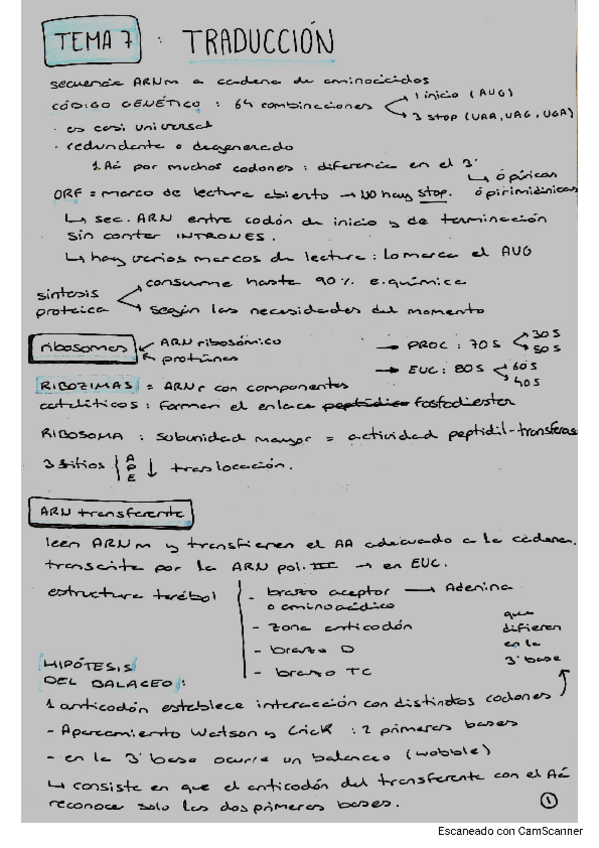 TEMA 7 : TRADUCCIÓN
secuencia ARNm a cadena de aminoácidos
CÓDIGO GENÉTICO : 64 combinaciones
1 inicio (AUG)
3 stop (UAA, UAG, UGA)
· es casi universal
· redundante o degenerado
1 Aá por muchos codones : diferencia en el 3'
↳ ó púricas
ó pirimidínicas
ORF = marco de lectura abierto → NO hay stop.
↳ sec. ARN entre codón de inicio y de terminación
sin contar INTRONES.
↳ hay varios marcos de lectura : lo marca el AUG
síntesis proteica
consume hasta 90% e. química
según las necesidades del momento
ribosomas
ARN ribosómico
proteínas
→ PROC : 70S
30S
50S
→ EUC : 80S
60S
40S
RIBOZIMAS = ARNr con componentes
catalíticos : forman el enlace peptídico fosfodiester
RIBOSOMA : subunidad mayor = actividad peptidil-transferasa
3 sitios
A
P
E
↓ translocación.
ARN transferente
leen ARNm y transfieren el AA adecuado a la cadena.
transcrita por la ARN pol. III → en EUC.
estructura trébol
- brazo aceptor → Adenina
o aminoacídico
- zona anticodón
- brazo D
- brazo TC
que
difieren
en la
3' base
HIPÓTESIS
DEL BALACEO :
1 anticodón establece interacción con distintos codones
- Apareamiento Watson y Crick : 2 primeras bases
- en la 3' base ocurre un balanceo (wobble)
↳ consiste en que el anticodón del transferente con el Aá
reconoce solo las dos primeras bases.
1
Escaneado con CamScanner